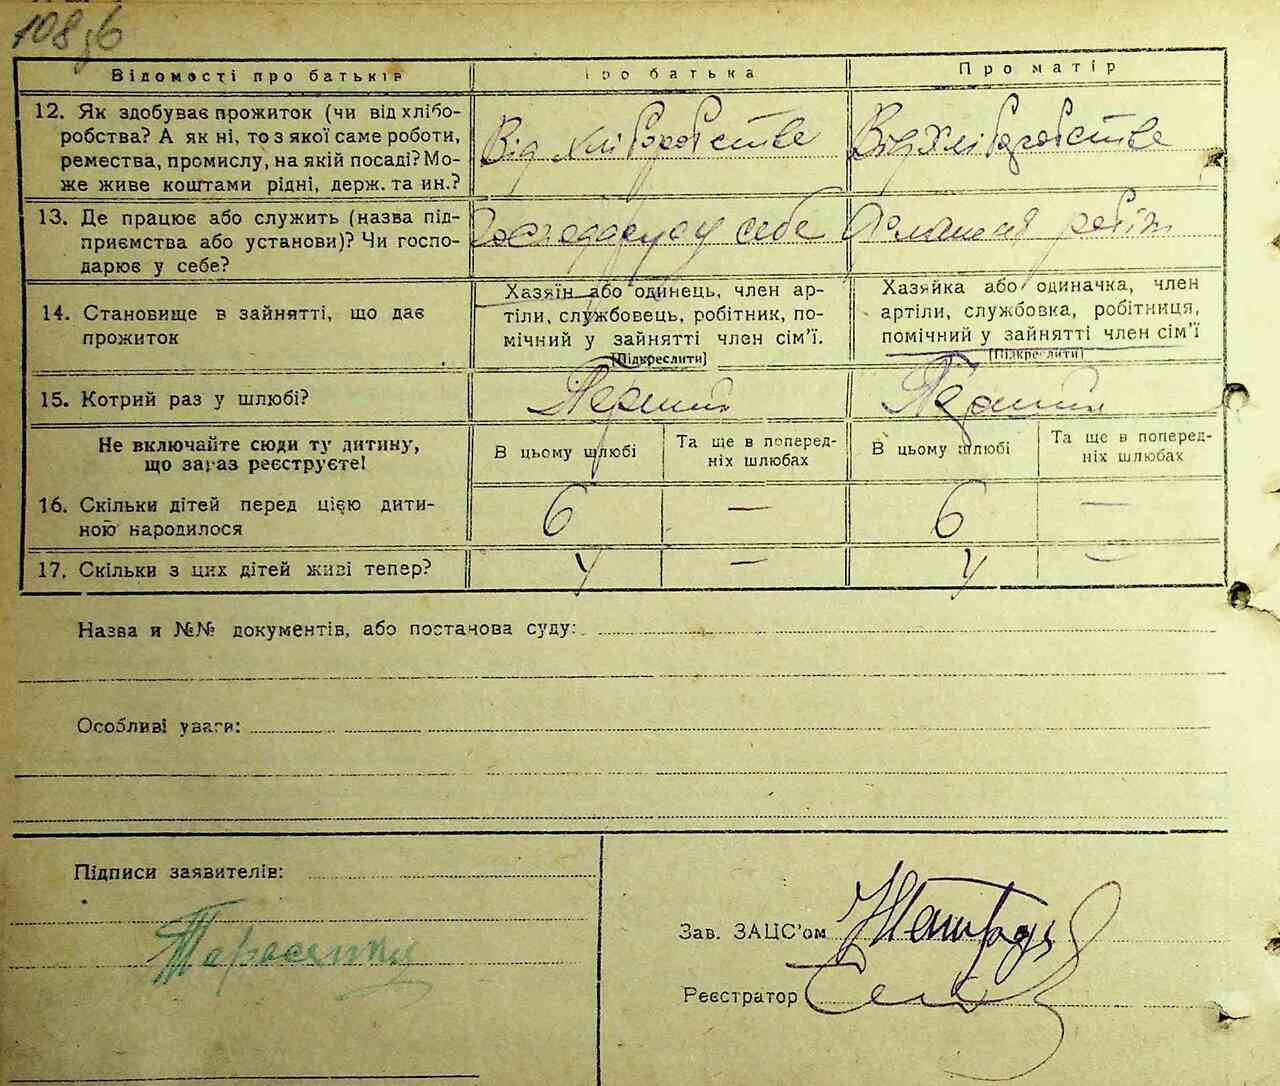 108 зб
Відомості про батьків
Про батька
Про матір
12. Як здобуває прожиток (чи від хлібо-
робства? А як ні, то з якої саме роботи,
ремества, промислу, на якій посаді? Мо-
же живе коштами рідні, держ. та ин.?
Від хліборобстве
Від Хліборобстве
13. Де працює або служить (назва під-
приємства або установи)? Чи госпо-
дарює у себе?
у себе
14. Становище в зайнятті, що дає
прожиток
Хазяїн або одинець, член ар-
тіли, службовець, робітник, по-
мічний у зайнятті член сім'ї.
[Підкреслити]
Хазяйка або одиначка, член
артіли, службовка, робітниця,
помічний у зайнятті член сім'ї
[Підкреслити]
15. Котрий раз у шлюбі?
Перший
Перший
Не включайте сюди ту дитину,
що зараз реєструєте!
В цьому шлюбі
Та ще в поперед-
ніх шлюбах
В цьому шлюбі
Та ще в поперед-
ніх шлюбах
16. Скільки дітей перед цією дити-
ною народилося
6 — 6 —
17. Скільки з цих дітей живі тепер?
4 — 4 —
Назва и №№ документів, або постанова суду:
Особливі уваги:
Підписи заявителів:
Зав. ЗАЦС'ом
Реєстратор